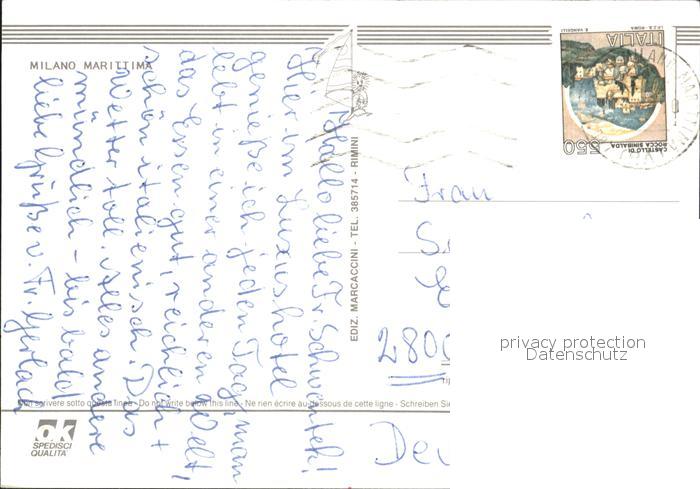 MILANO MARITTIMA
Hallo liebe Fr. Schwentek!
Hier im Luxushotel
genieße ich jeden Tag, man
lebt in einer anderen Welt,
das Essen gut, reichlich +
schön italienisch. Das
Wetter toll. Alles andere
mündlich - bis bald
liebe Grüße v. Fr. Gerlach
EDIZ. MARCACCINI - TEL. 385714 - RIMINI
ITALIA
550
CASTELLO DI
ROCCA SINIBALDA
I.P.Z.S. - ROMA
E. VANGELLI
Frau
280
privacy protection
Datenschutz
Non scrivere sotto questa linea - Do not write below this line - Ne rien écrire au-dessous de cette ligne - Schreiben Sie
ok
SPEDISCI
QUALITA'